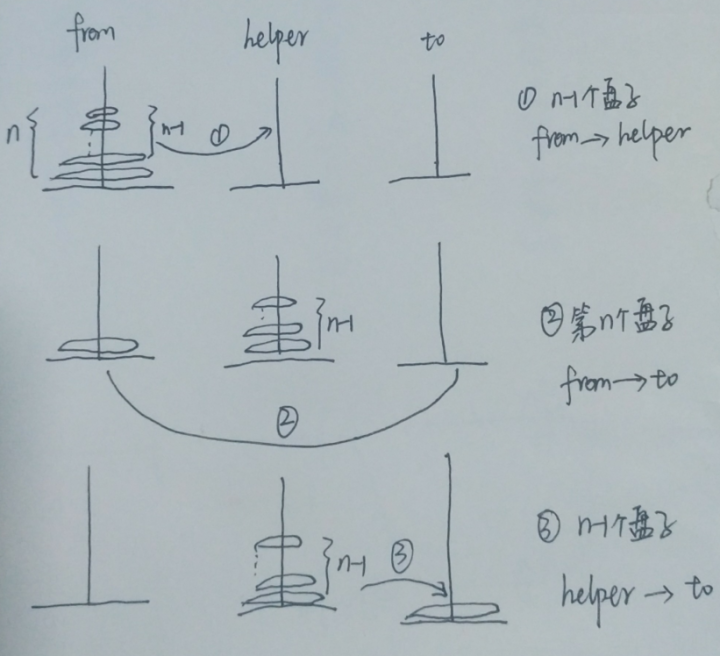 from helper to
n n-1 ① ① n-1个盘子
from→helper
n-1 ②第n个盘子
from→to
②
n-1 ③ ③ n-1个盘子
helper→to